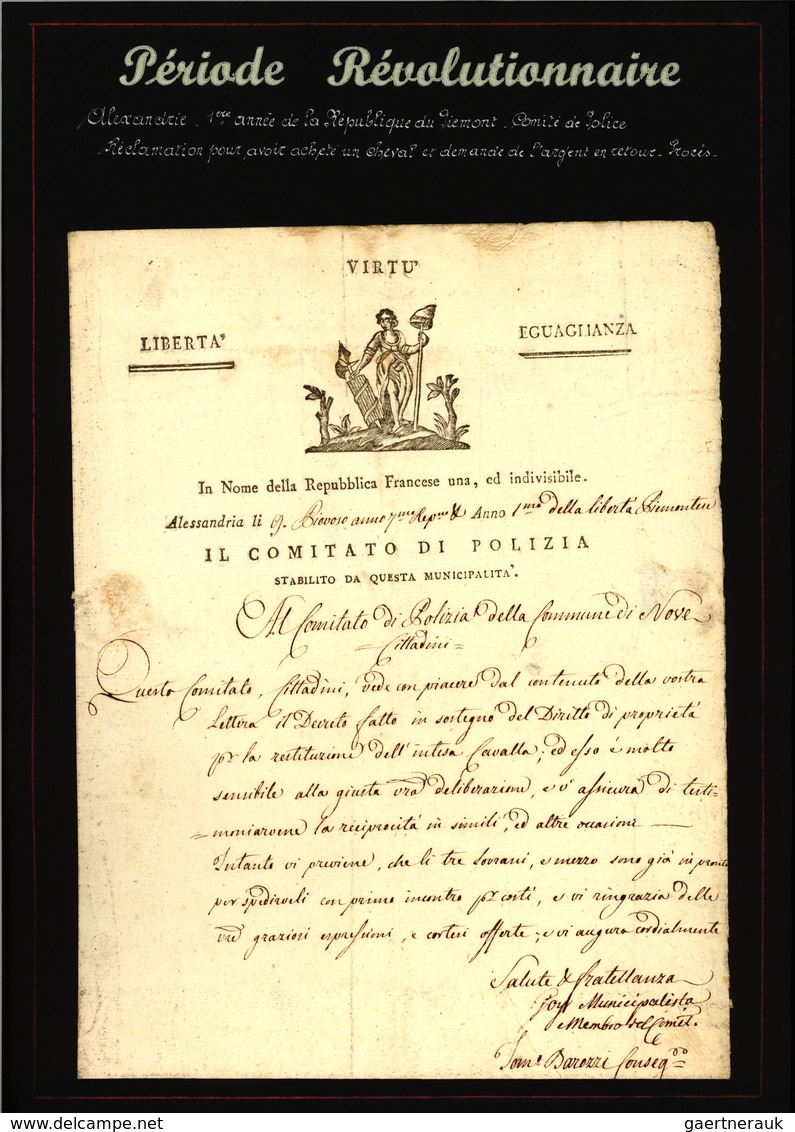 Période Révolutionnaire
Alexandrie. 1ère année de la République du Piemont. Comité de Police
Réclamation pour avoir acheté un cheval et demande de l'argent en retour. Procès.
VIRTU'
LIBERTA'
EGUAGLIANZA
In Nome della Repubblica Francese una, ed indivisibile.
Alessandria li 9. Piovoso anno 7.mo Rep.no & Anno 1.mo della libertà Piemontese
IL COMITATO DI POLIZIA
STABILITO DA QUESTA MUNICIPALITA'.
Al Comitato di Polizia della Commune di Nove
= Cittadini =
Questo Comitato, Cittadini, vede con piacere dal contenuto della vostra
Lettera il Decreto fatto in sostegno del Diritto di proprietà
pr la restituzione dell'intesa Cavalla; ed esso é molto
sensibile alla giusta vra deliberazione, e v'assicura di testi-
=moniarvene la reciprocità in simili, ed altre occasioni
Intanto vi previene, che li tre Sovrani, e mezzo sono già in pronto
per spedirveli con primo incontro pr costì, e vi ringrazia delle
vre graziosi espressioni, e cortesi offerte; e vi augura cordialmente
Salute & fratellanza
Municipalista
e Membro del Comit.
Barozzi
gaertnerauk